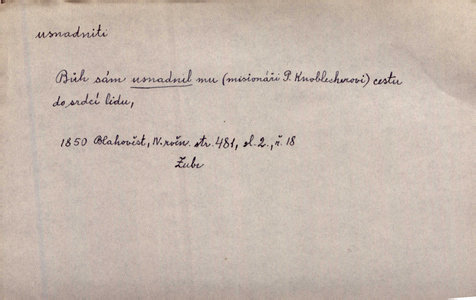 usnadniti
Bůh sám usnadnil mu (misionáři P. Knoblecherovi) cestu
do srdcí lidu,
1850 Blahověst, IV. ročn. str. 481, sl. 2., ř. 18
Žube